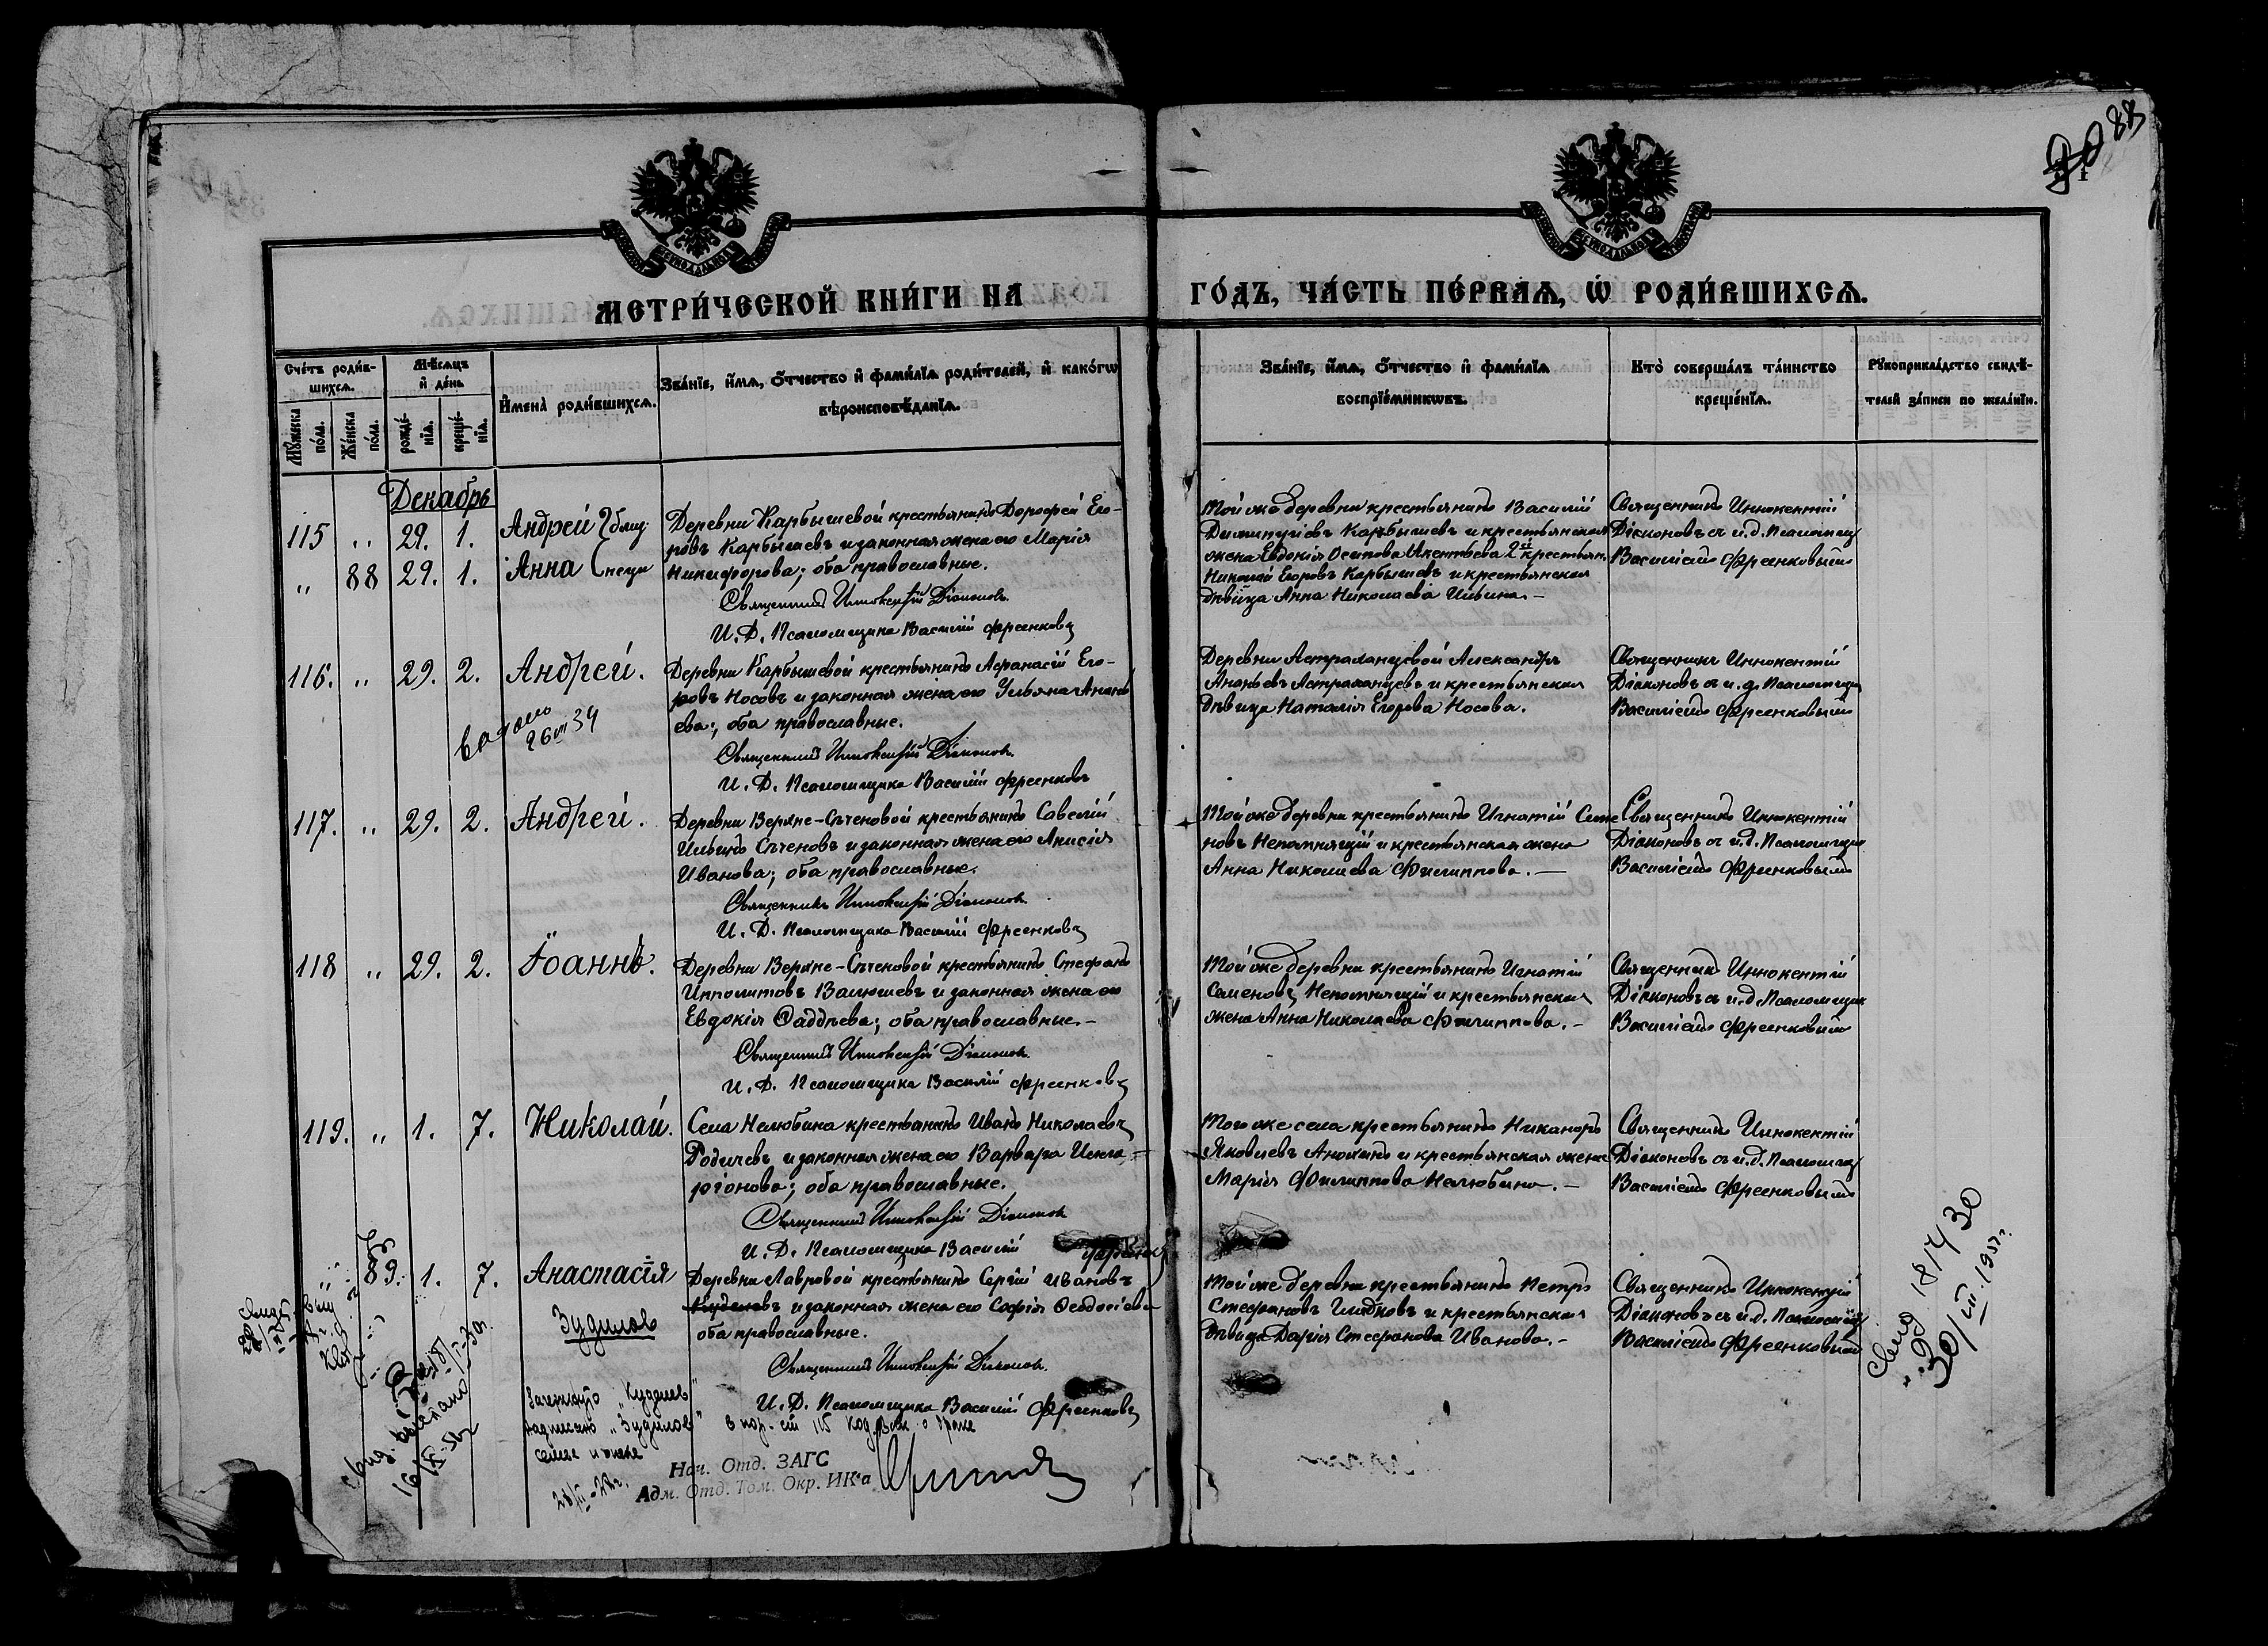 88
МЕТРИ́ЧЕСКОЙ КНИ́ГИ НА ГО́ДЪ, ЧА́СТЬ ПЕ́РВАЯ, Ѡ РОДИ́ВШИХСЯ.
Сче́тъ роди́в-
шихся.
Мꙋ́жеска по́ла.
Же́нска по́ла.
Мѣ́сяцъ и де́нь
рожде́-
нїя.
креще́-
нїя.
Имена̀ роди́вшихся.
Зва́нїе, и́мя, о́тчество и фами́лїя роди́телей, и како́гѡ
вѣроисповѣ́данїя.
Зва́нїе, и́мя, о́тчество и фами́лїя
воспрїе́мникѡвъ.
Кто̀ соверша́лъ та́инство
креще́нїя.
Рꙋкоприкла́дство свидѣ́-
телей за́писи по жела́нїю.
Декабрь
115 „ 29. 1. Андрей
„ 88 29. 1. Анна
Деревни Карбышевой крестьянинъ Дорофей Его-
ровъ Карбышевъ и законная жена его Марія
Никифорова; оба православные.
Священникъ Иннокентій Діаконовъ
И. Д. Псаломщика Василій Фреенковъ
Той же деревни крестьянинъ Василій
Димитріевъ Карбышевъ и крестьянская
жена Евдокія Осипова
Николай Егоровъ Карбышевъ и крестьянская
дѣвица Анна Николаева Ильина. –
Священникъ Иннокентій
Діаконовъ съ и.д. Псаломщ
Василіемъ Фреенковымъ
116. „ 29. 2. Андрей.
Деревни Карбышевой крестьянинъ Афанасій Его-
ровъ Носовъ и законная жена его Ульяна Анань
ева; оба православные.
Священникъ Иннокентій Діаконовъ
И. Д. Псаломщика Василій Фреенковъ
Деревни Астраханцевой Александръ
Ананьевъ Астраханцевъ и крестьянская
дѣвица Наталія Егорова Носова.
Священникъ Иннокентій
Діаконовъ съ и. д. Псаломщик
Василіемъ Фреенковымъ
117. „ 29. 2. Андрей.
Деревни Верхне-Сѣченовой крестьянинъ Савелій
Ильинъ Сѣченовъ и законная жена его Анисія
Иванова; оба православные.
Священникъ Иннокентій Діаконовъ
И. Д. Псаломщика Василій Фреенковъ
Той же деревни крестьянинъ Игнатій Семе
новъ Непомнящій и крестьянская жена
Анна Николаева Филиппова. —
Священникъ Иннокентій
Діаконовъ съ и.д. Псаломщик
Василіемъ Фреенковымъ
118 „ 29. 2. Іоаннъ.
Деревни Верхне-Сѣченовой крестьянинъ Стефанъ
Ипполитовъ Валюшевъ и законная жена его
Евдокія Фаддѣева; оба православные. –
Священникъ Иннокентій Діаконовъ
И. Д. Псаломщика Василій Фреенковъ
Той же деревни крестьянинъ Игнатій
Семеновъ Непомнящій и крестьянская
жена Анна Николаева Филиппова. –
Священникъ Иннокентій
Діаконовъ съ и.д. Псаломщик
Василіемъ Фреенковымъ
119. „ 1. 7. Николай.
Села Нелюбина крестьянинъ Иванъ Николаевъ
Родичевъ и законная жена его Варвара
оба православные.
Священникъ Иннокентій Діаконовъ
И. Д. Псаломщика Василій
Того же села крестьянинъ Никаноръ
Яковлевъ Анохинъ и крестьянская жена
Марія Филиппова Нелюбина. –
Священникъ Иннокентій
Діаконовъ съ и.д. Псаломщ
Василіемъ Фреенковымъ
„ 89. 1. 7. Анастасія
Зудилов
Деревни Лавровой крестьянинъ Сергій Ивановъ
и законная жена его Софія Феодосіева
оба православные.
Священникъ Иннокентій Діаконовъ.
И. Д. Псаломщика Василій Фреенковъ
Той же деревни крестьянинъ Петръ
Стефановъ Глядковъ и крестьянская
дѣвица Дарія Стефанова Иванова. –
Священникъ Иннокентій
Діаконовъ съ и.д. Псаломщ
Василіемъ Фреенковымъ
Зачеркнуто „Кудилев"
надписано „Зудилов"
Нач. Отд. ЗАГС
Адм. Отд. Том. Окр. ИК'а
30/VII.1957г.